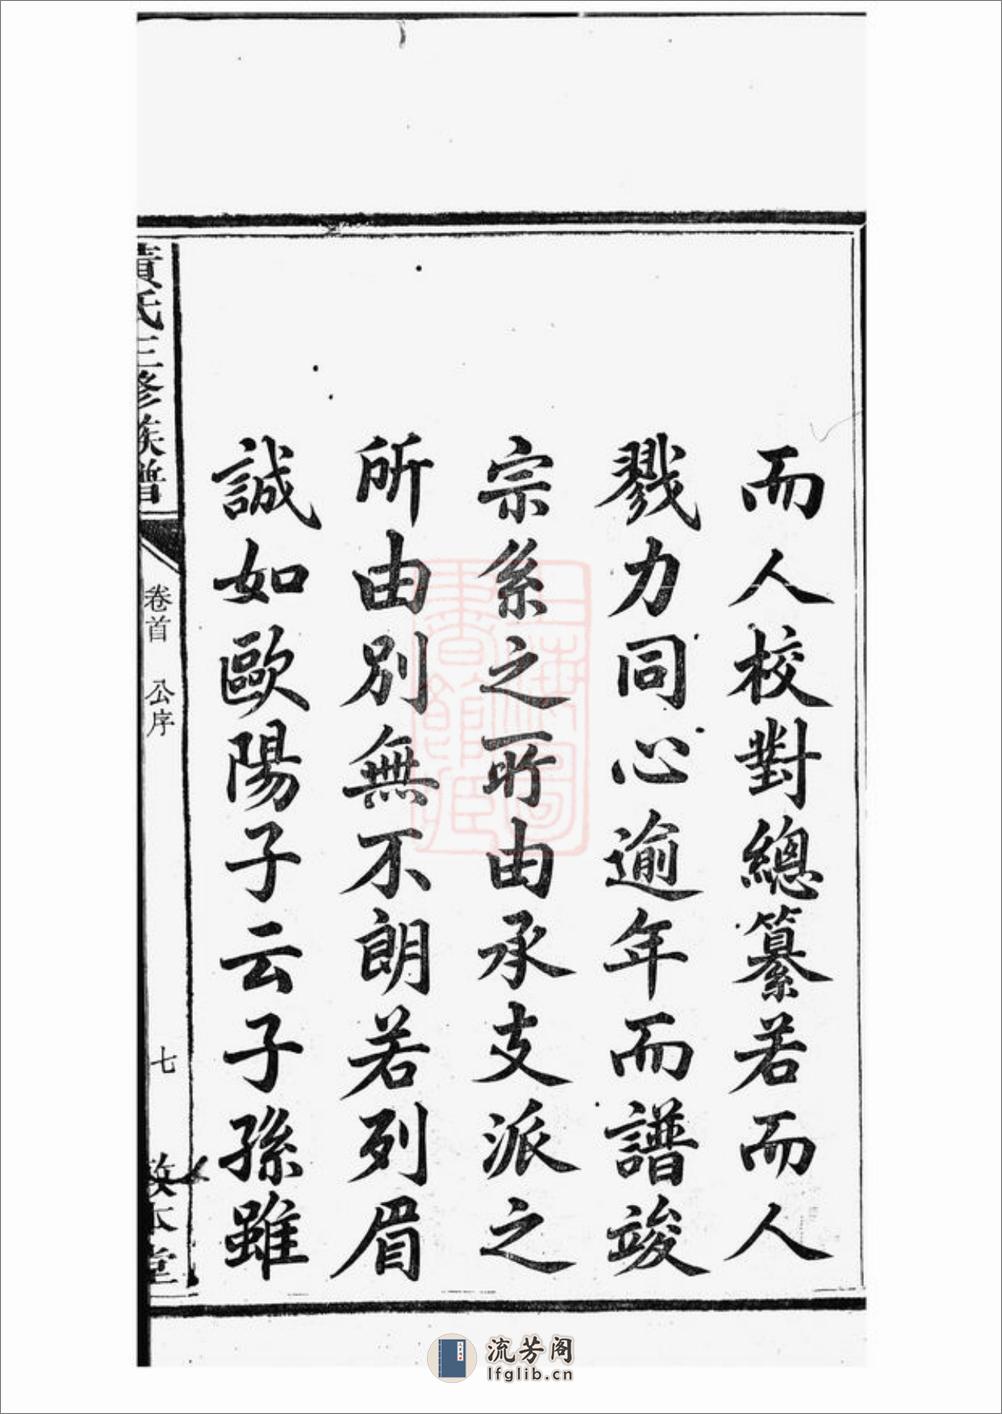 而人校對總纂若而人
戮力同心逾年而譜竣
宗系之所由承支派之
所由別無不朗若列眉
誠如歐陽子云子孫雖
黃氏三修族譜
卷首 公序
七
敦本堂
上海圖書館藏
流芳阁
lfglib.cn